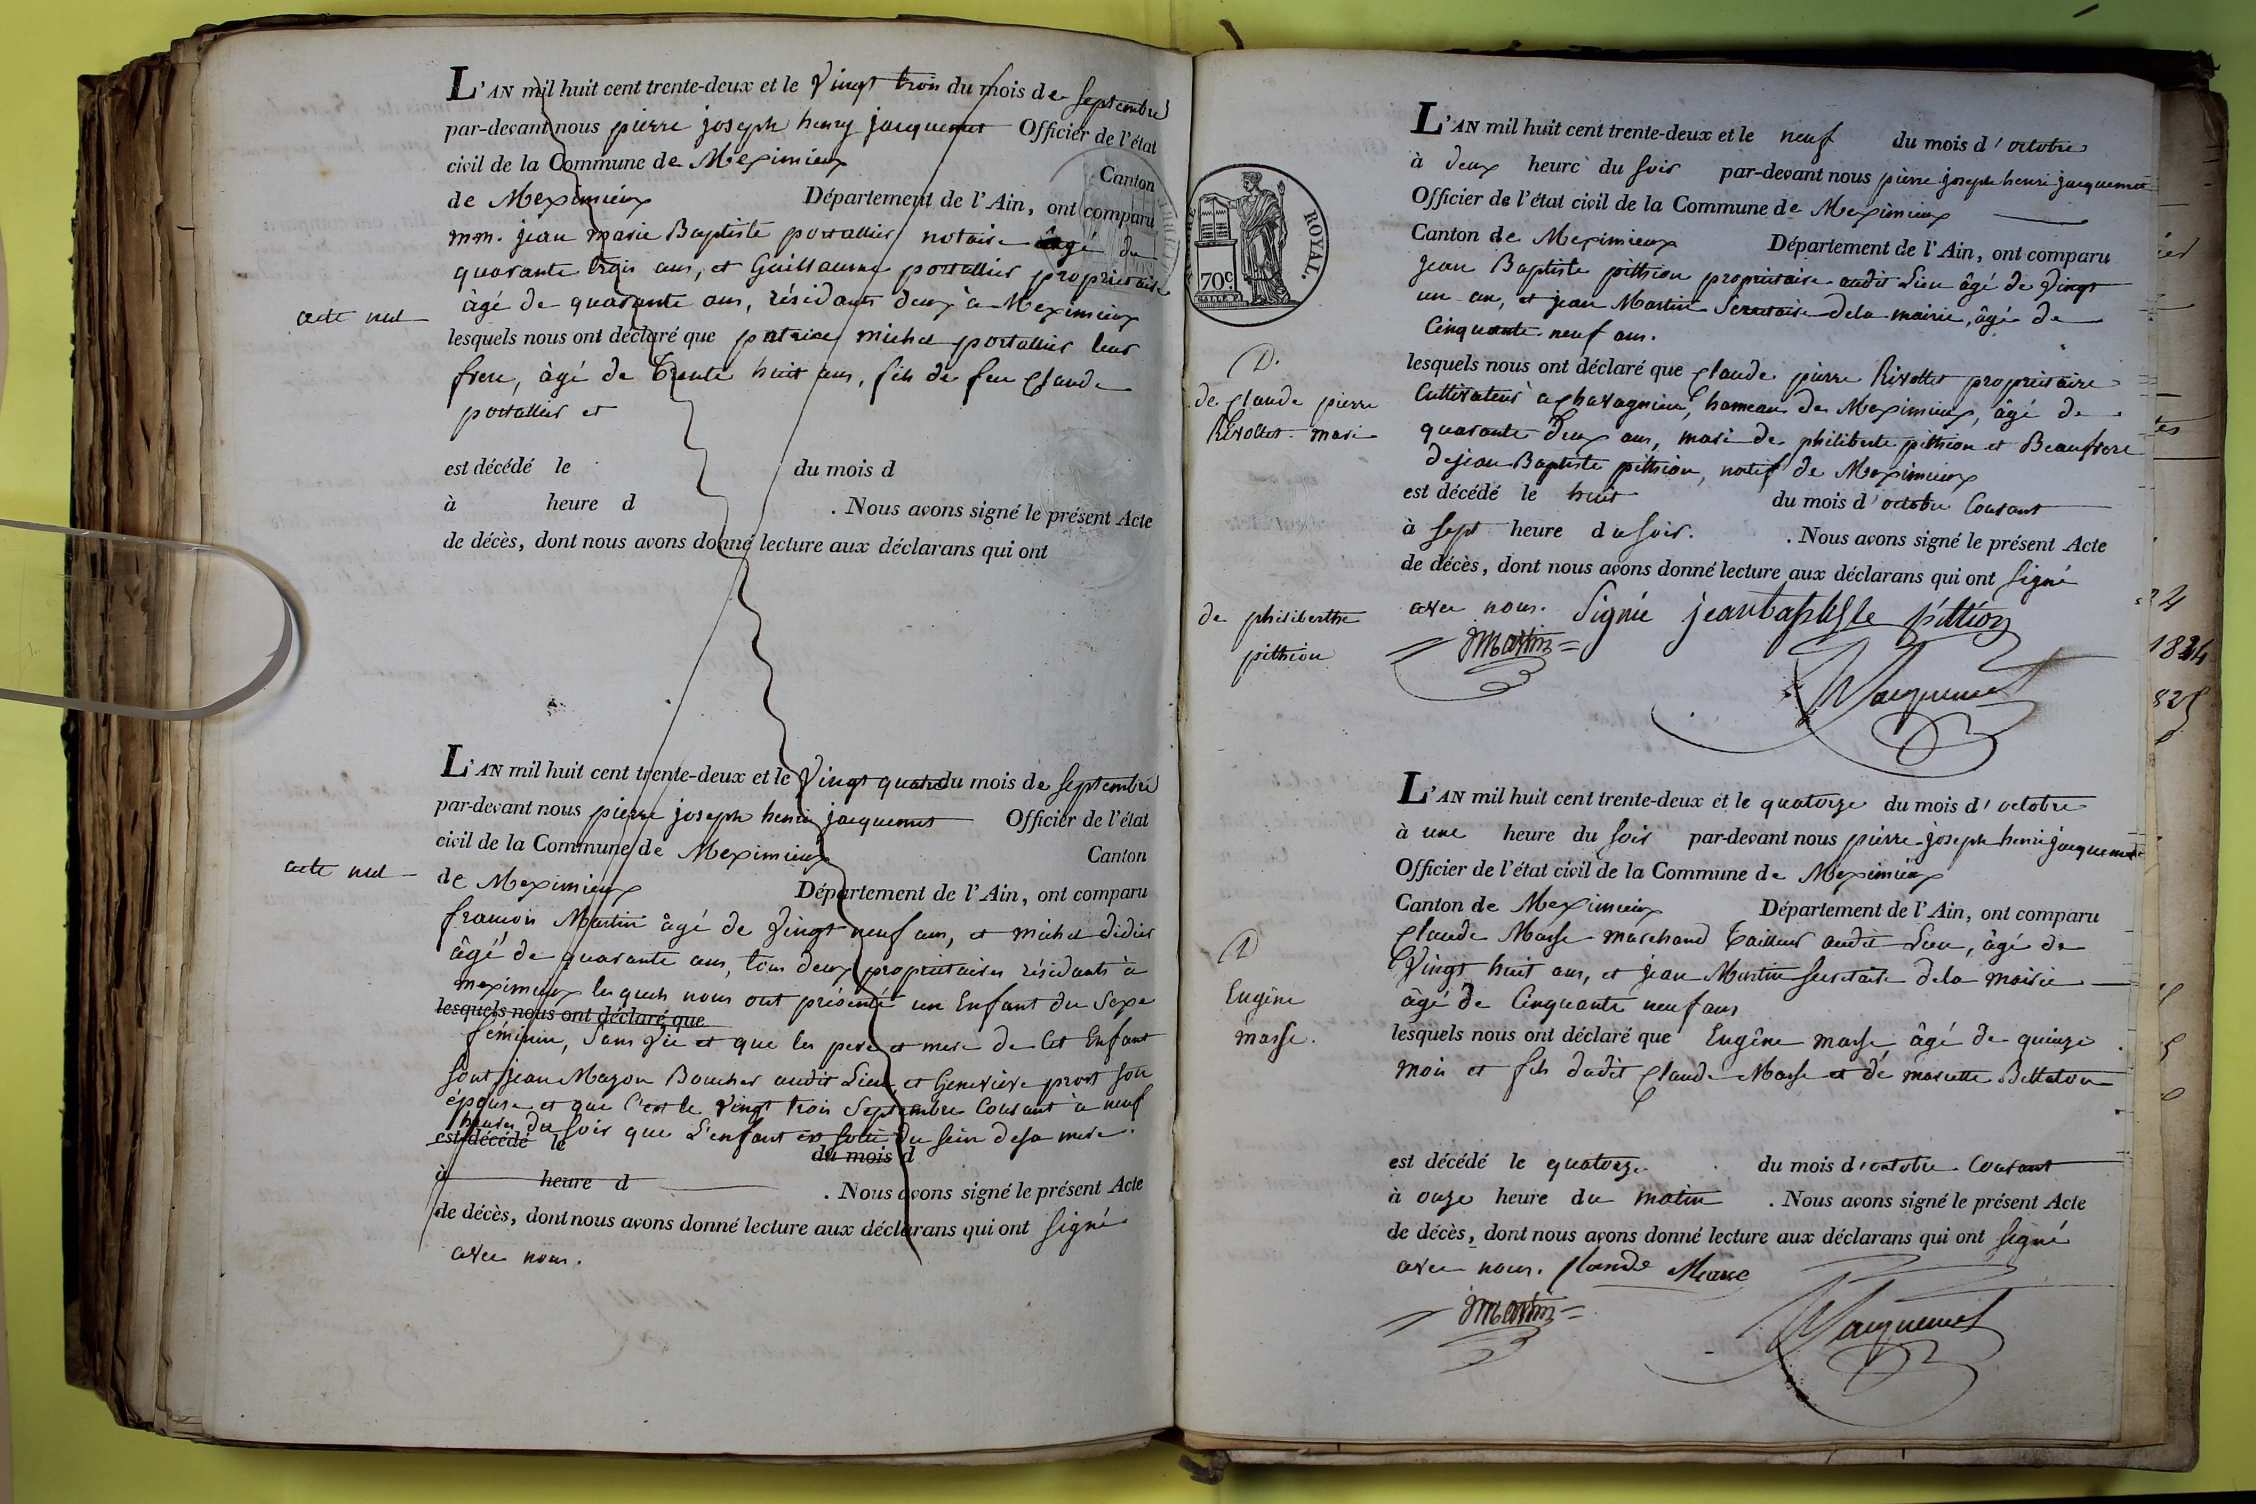 L'AN mil huit cent trente-deux et le vingt trois du mois de septembre
par-devant nous pierre joseph henry jacquemet Officier de l'état
civil de la Commune de Meximieux
Canton
de Meximieux Département de l'Ain, ont comparu
mm. jean marie Baptiste portallier notaire âgé de
quarante trois ans, et Guillaume portallier propriétaire
âgé de quarante ans, résidants deux à Meximieux
acte nul
lesquels nous ont déclaré que patrice michel portallier leur
frere, âgé de trente huit ans, fils de feu Claude
portallier et
est décédé le du mois d
à heure d . Nous avons signé le présent Acte
de décès, dont nous avons donné lecture aux déclarans qui ont
L'AN mil huit cent trente-deux et le vingt quatre du mois de septembre
par-devant nous pierre joseph henri jacquemet Officier de l'état
civil de la Commune de Meximieux
Canton
acte nul
de Meximieux Département de l'Ain, ont comparu
francois Martin âgé de vingt neuf ans, et michel didier
âgé de quarante ans, tous deux propriétaires résidants à
meximieux lesquels nous ont présenté un Enfant du Sexe
lesquels nous ont déclaré que
féminin, Sans vie et que les pere et mere de Cet Enfant
sont jean Mazon Boucher audit Lieu et Genevieve prost son
épouse et que C'est le vingt trois Septembre Courant à neuf
heures du soir que L'enfant est sorti du sein de sa mere.
est décédé le du mois d
à heure d . Nous avons signé le présent Acte
de décès, dont nous avons donné lecture aux déclarans qui ont signé
avec nous.
L'AN mil huit cent trente-deux et le neuf du mois d'octobre
à deux heure du soir par-devant nous pierre joseph henri jacquemet
Officier de l'état civil de la Commune de Meximieux
Canton de Meximieux Département de l'Ain, ont comparu
jean Baptiste pittion propriétaire audit Lieu âgé de vingt
un an, et jean Martin Secretaire dela mairie, âgé de
Cinquante neuf ans.
ROYAL.
70c
D.
de Claude pierre
Rivollet mari
de philiberthe
pittion
lesquels nous ont déclaré que Claude pierre Rivollet propriétaire
Cultivateur à Charagnieu, hameau de Meximieux, âgé de
quarante deux ans, mari de philiberte pittion et Beaufrere
de jean Baptiste pittion, natif de Meximieux
est décédé le huit du mois d'octobre Courant
à sept heure du soir. . Nous avons signé le présent Acte
de décès, dont nous avons donné lecture aux déclarans qui ont signé
avec nous. Signié jeanbaptiste pittion
Martin
Jacquemet
L'AN mil huit cent trente-deux et le quatorze du mois d'octobre
à une heure du soir par-devant nous pierre joseph henri jacquemet
Officier de l'état civil de la Commune de Meximieux
Canton de Meximieux Département de l'Ain, ont comparu
Claude Masse marchand tailleur audit Lieu, âgé de
vingt huit ans, et jean Martin Secretaire dela mairie
âgé de Cinquante neuf ans
D
Eugène
masse.
lesquels nous ont déclaré que Eugène masse âgé de quinze
mois et fils dudit Claude Masse et de mariette Bellaton
est décédé le quatorze du mois d'octobre Courant
à onze heure du matin . Nous avons signé le présent Acte
de décès, dont nous avons donné lecture aux déclarans qui ont signé
avec nous. Claude Masse
Martin
Jacquemet